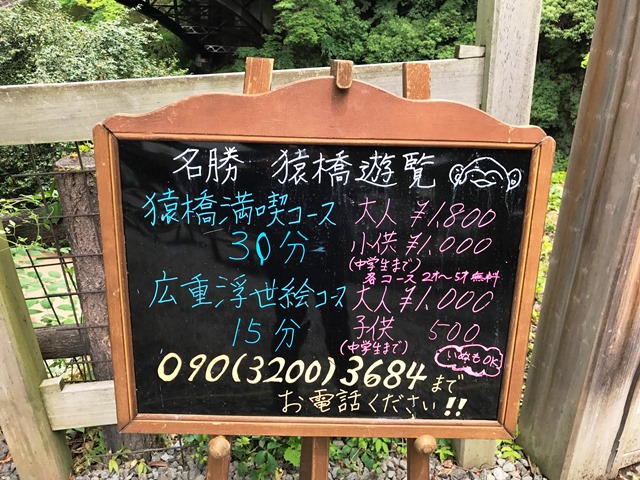 名勝 猿橋遊覧
猿橋満喫コース 大人 ¥1,800
30分 小供 ¥1,000
(中学生まで)
各コース 2才～5才無料
広重浮世絵コース 大人 ¥1,000
15分 子供 500
(中学生まで)
いぬもOK
090(3200)3684まで
お電話ください!!